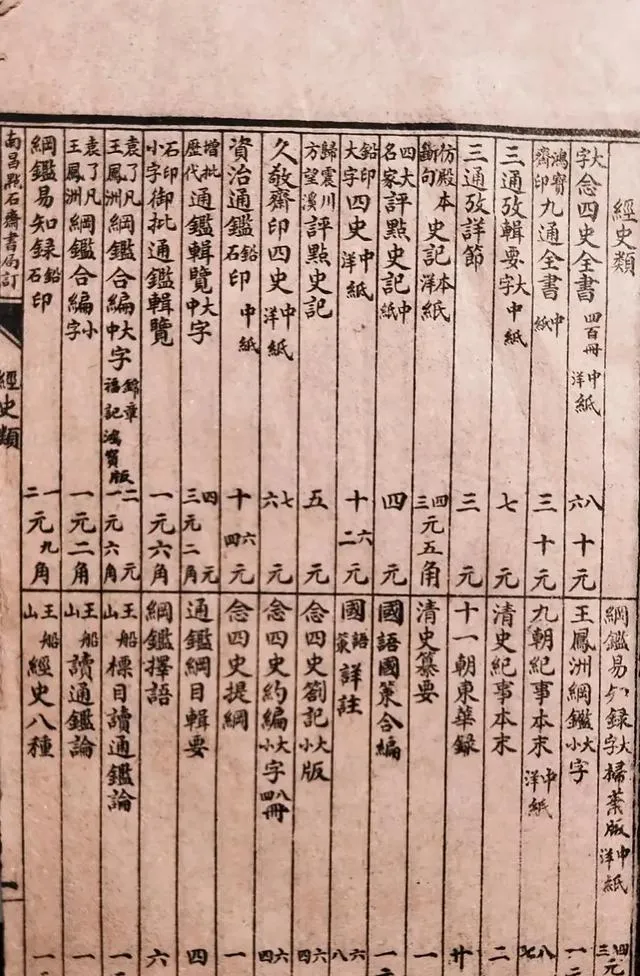 經史類
大字念四史全書 四百冊 中洋紙 八六十元
鴻寶齋印九通全書 中紙 三十元
三通攷輯要 大字 中紙 七元
三通攷詳節 三元
仿殿本斷句史記 本洋紙 四三元五角
四大名家評點史記 中紙 四元
鉛印大字四史 中洋紙 十六二元
歸震川方望溪評點史記 五元
久敬齋印四史 中洋紙 七六元
資治通鑑 鉛石印 中紙 十六四元
增批歷代通鑑輯覽 大中字 四元三元二角
石印小字御批通鑑輯覽 一元六角
袁了凡王鳳洲綱鑑合編 大中字 錦章福記鴻寶版 二元一元六角
袁了凡王鳳洲綱鑑合編 小字 一元二角
綱鑑易知錄 鉛石印 一二元九角
綱鑑易知錄 大字 掃葉版 中洋紙 四元三
王鳳洲綱鑑 大小字 一
九朝紀事本末 中洋紙
清史紀事本末 二
十一朝東華錄 廿
清史纂要 一
國語國策合編 一
國語國策詳註 六八
念四史劄記 大小版 六四
念四史約編 大小字 八四冊 六四
念四史提綱 一
通鑑綱目輯要 四
綱鑑擇語 六
王船山標目讀通鑑論 一
王船山讀通鑑論 一
王船山經史八種 一
南昌點石齋書局訂
經史類